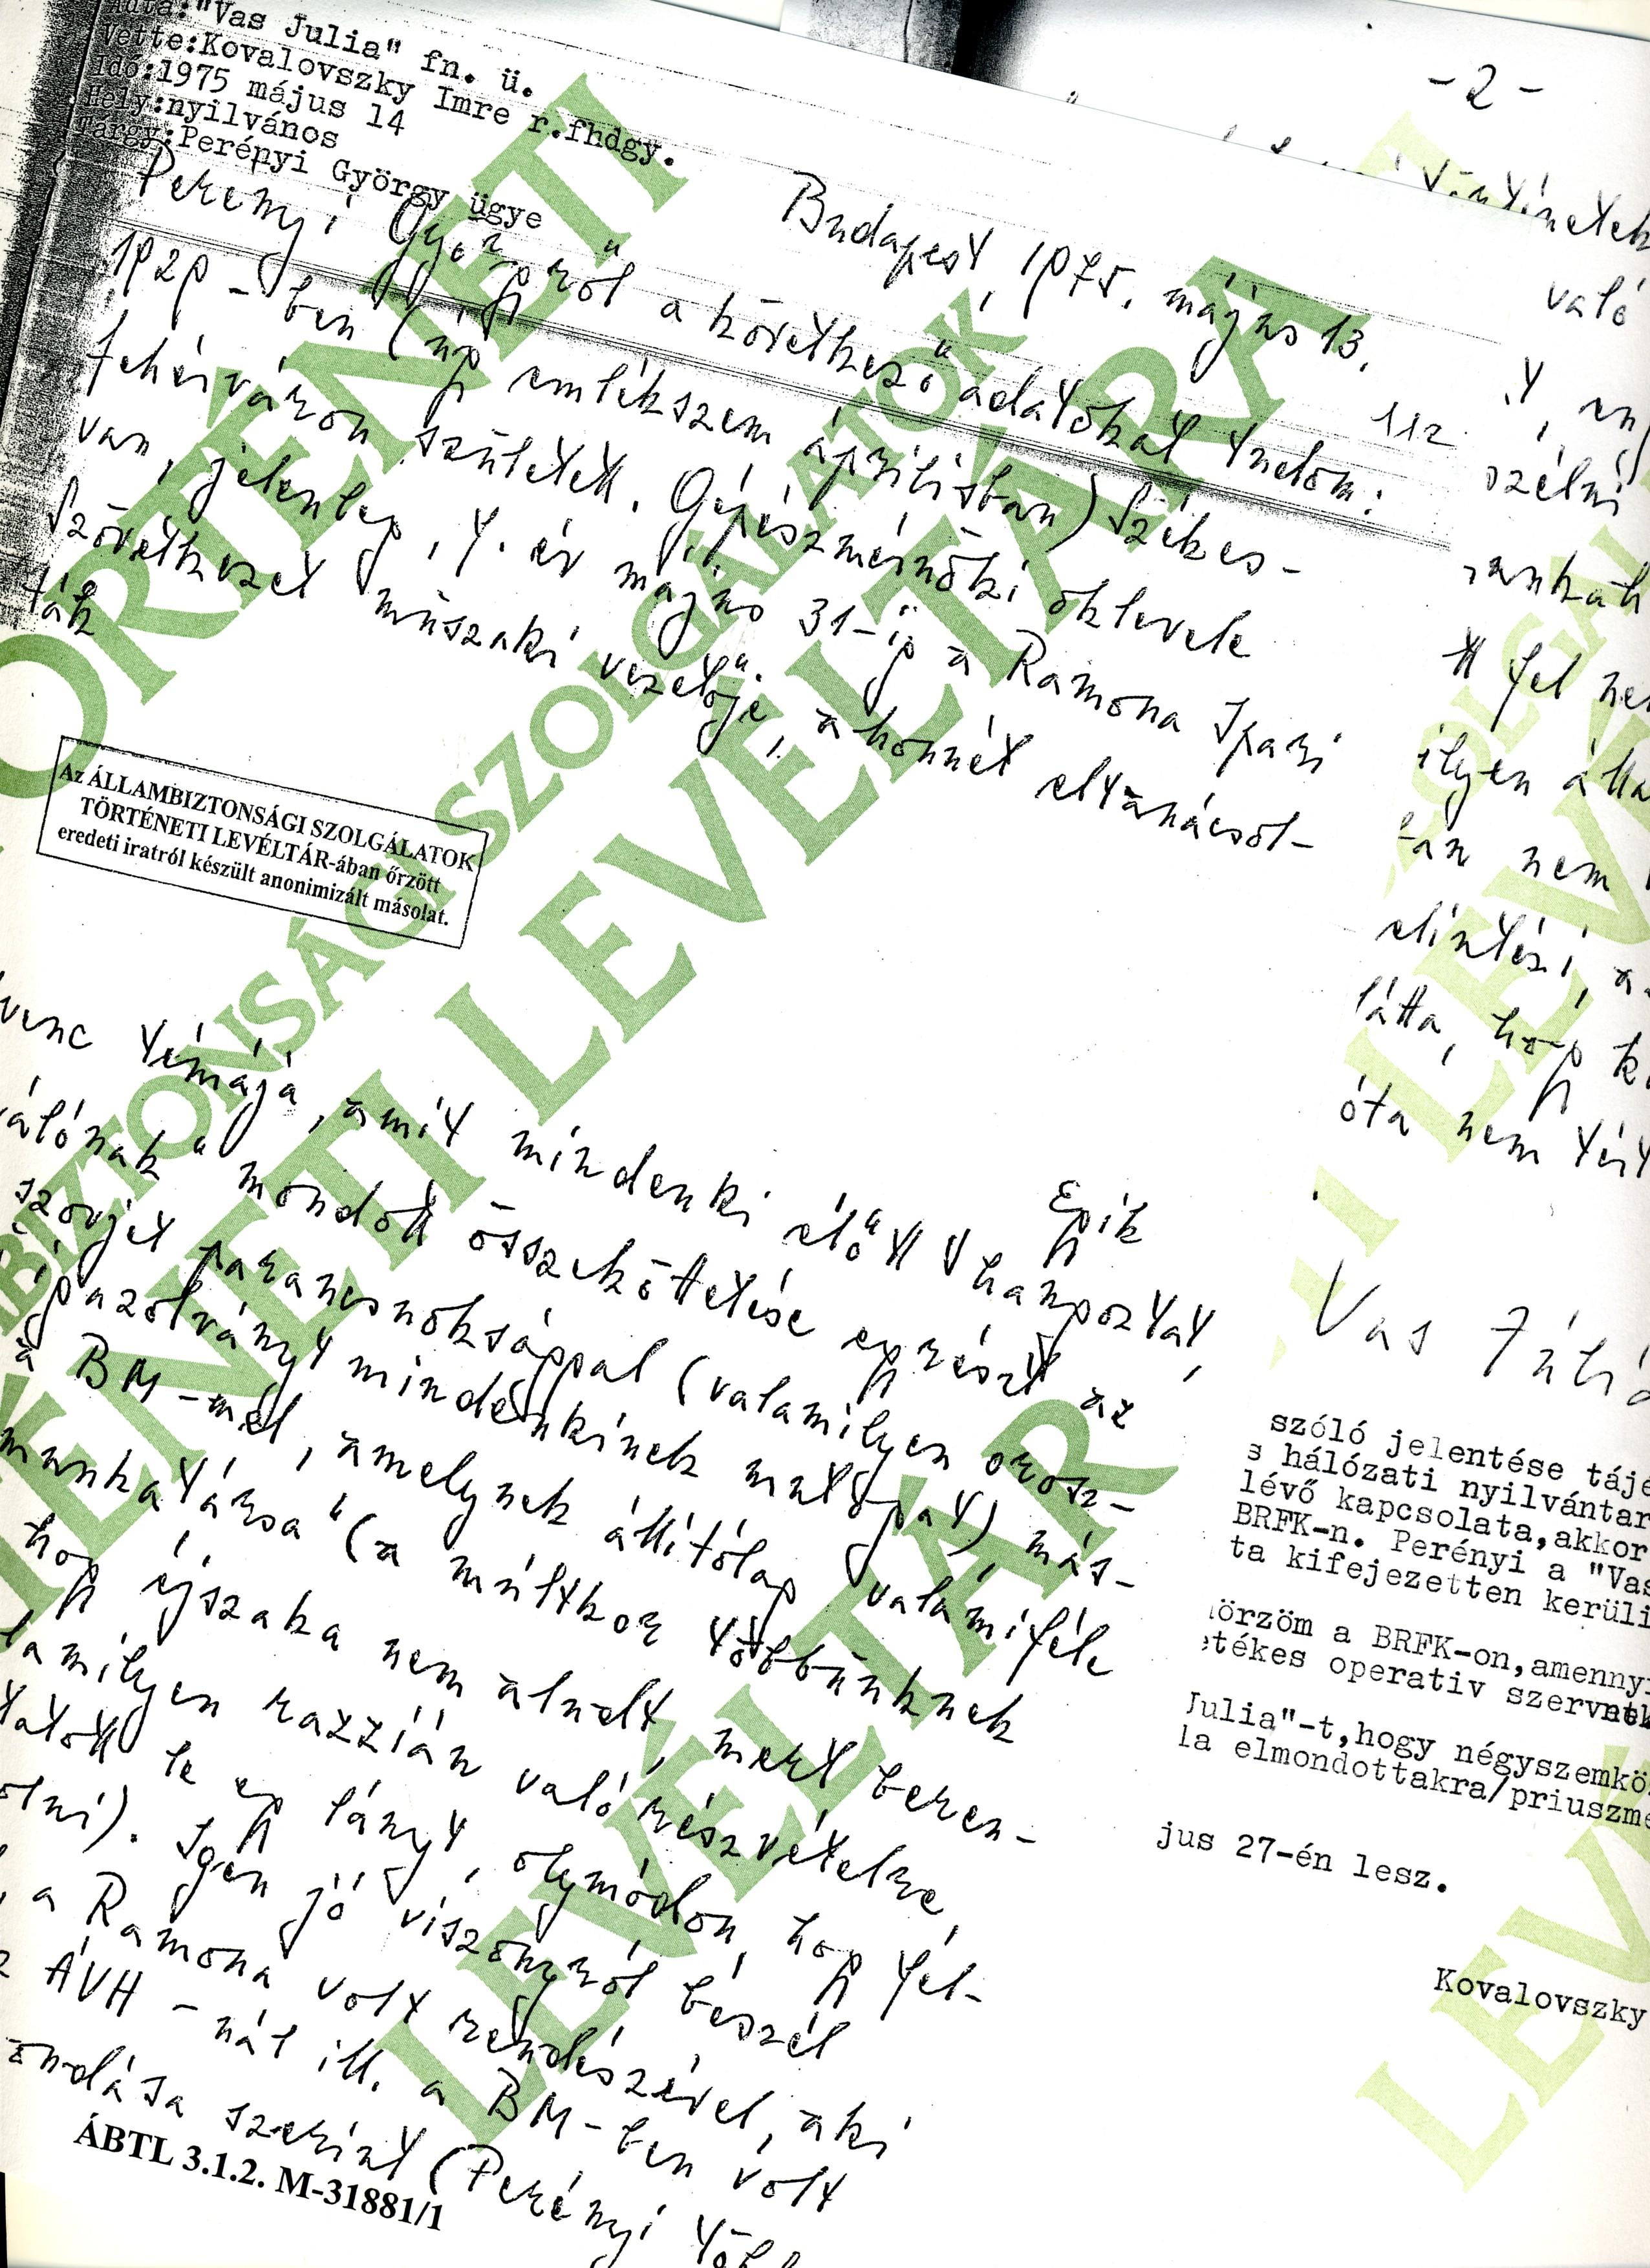 Adta:"Vas Julia" fn. ü.
Vette:Kovalovszky Imre r.fhdgy.
Idő:1975 május 14
Hely:nyilvános
Tárgy:Perényi György ügye
Budapest, 1975. május 13.
112
Perényi Györgyről a következő adatokat tudom:
1929-ben (úgy emlékszem áprilisban) Székes-
fehérváron született. Gépészmérnöki oklevele
van, jelenleg, f. év május 31-ig a Ramona Ipari
Szövetkezet műszaki vezetője, ahonnét eltanácsol-
ták
Az ÁLLAMBIZTONSÁGI SZOLGÁLATOK
TÖRTÉNETI LEVÉLTÁR-ában őrzött
eredeti iratról készült anonimizált másolat.
Egyik
venc témája, amit mindenki előtt hangoztat,
álónak" mondott összeköttetése egyrészt az
szovjet parancsnoksággal (valamilyen orosz-
igazolványt mindenkinek mutogat), más-
a BM-mel, amelynek állítólag valamiféle
munkatársa" (a múltkor többünknek
hogy éjszaka nem aludt, mert beren-
lamilyen razzián való részvételre,
tatott le egy lányt, olymódon, hogy fel-
olni). Igen jó viszonyról beszél
a Ramona volt rendészével, aki
z ÁVH-nál ill. a BM-ben volt
ondása szerint (Perényi több
ÁBTL 3.1.2. M-31881/1
-2-
történetek
való
szélni
munkát
tt fel nem
ilyen álla
ban nem
elintézi, a
látta, hogy k
óta nem tért
Vas Júlia
szóló jelentése táje
s hálózati nyilvántar
lévő kapcsolata,akkor
BRFK-n. Perényi a "Vas
ta kifejezetten kerüli
őrzöm a BRFK-on,amennyi
etékes operativ szervnek
Julia"-t,hogy négyszemkö
la elmondottakra/priuszme
jus 27-én lesz.
Kovalovszky
TÖRTÉNETI
LEVÉLTÁRA
ÁLLAMBIZTONSÁGI SZOLGÁLATOK
TÖRTÉNETI LEVÉLTÁRA
LEVÉLTÁR